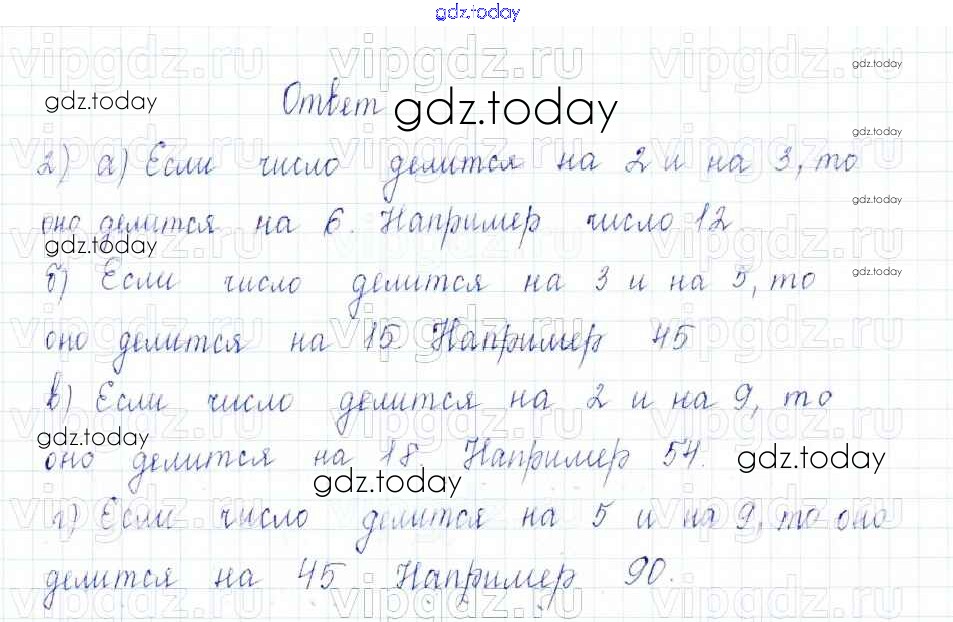 gdz.today
vipgdz.ru vipgdz.ru vipgdz.ru
gdz.today
gdz.today Ответ gdz.today
gdz.today
2) а) Если число делится на 2 и на 3, то
gdz.today
оно делится на 6. Например число 12
gdz.today
б) Если число делится на 3 и на 5, то
gdz.today
оно делится на 15 Например 45
в) Если число делится на 2 и на 9, то
gdz.today
оно делится на 18. Например 54. gdz.today
gdz.today
г) Если число делится на 5 и на 9, то оно
делится на 45 Например 90.
vipgdz.ru vipgdz.ru vipgdz.ru